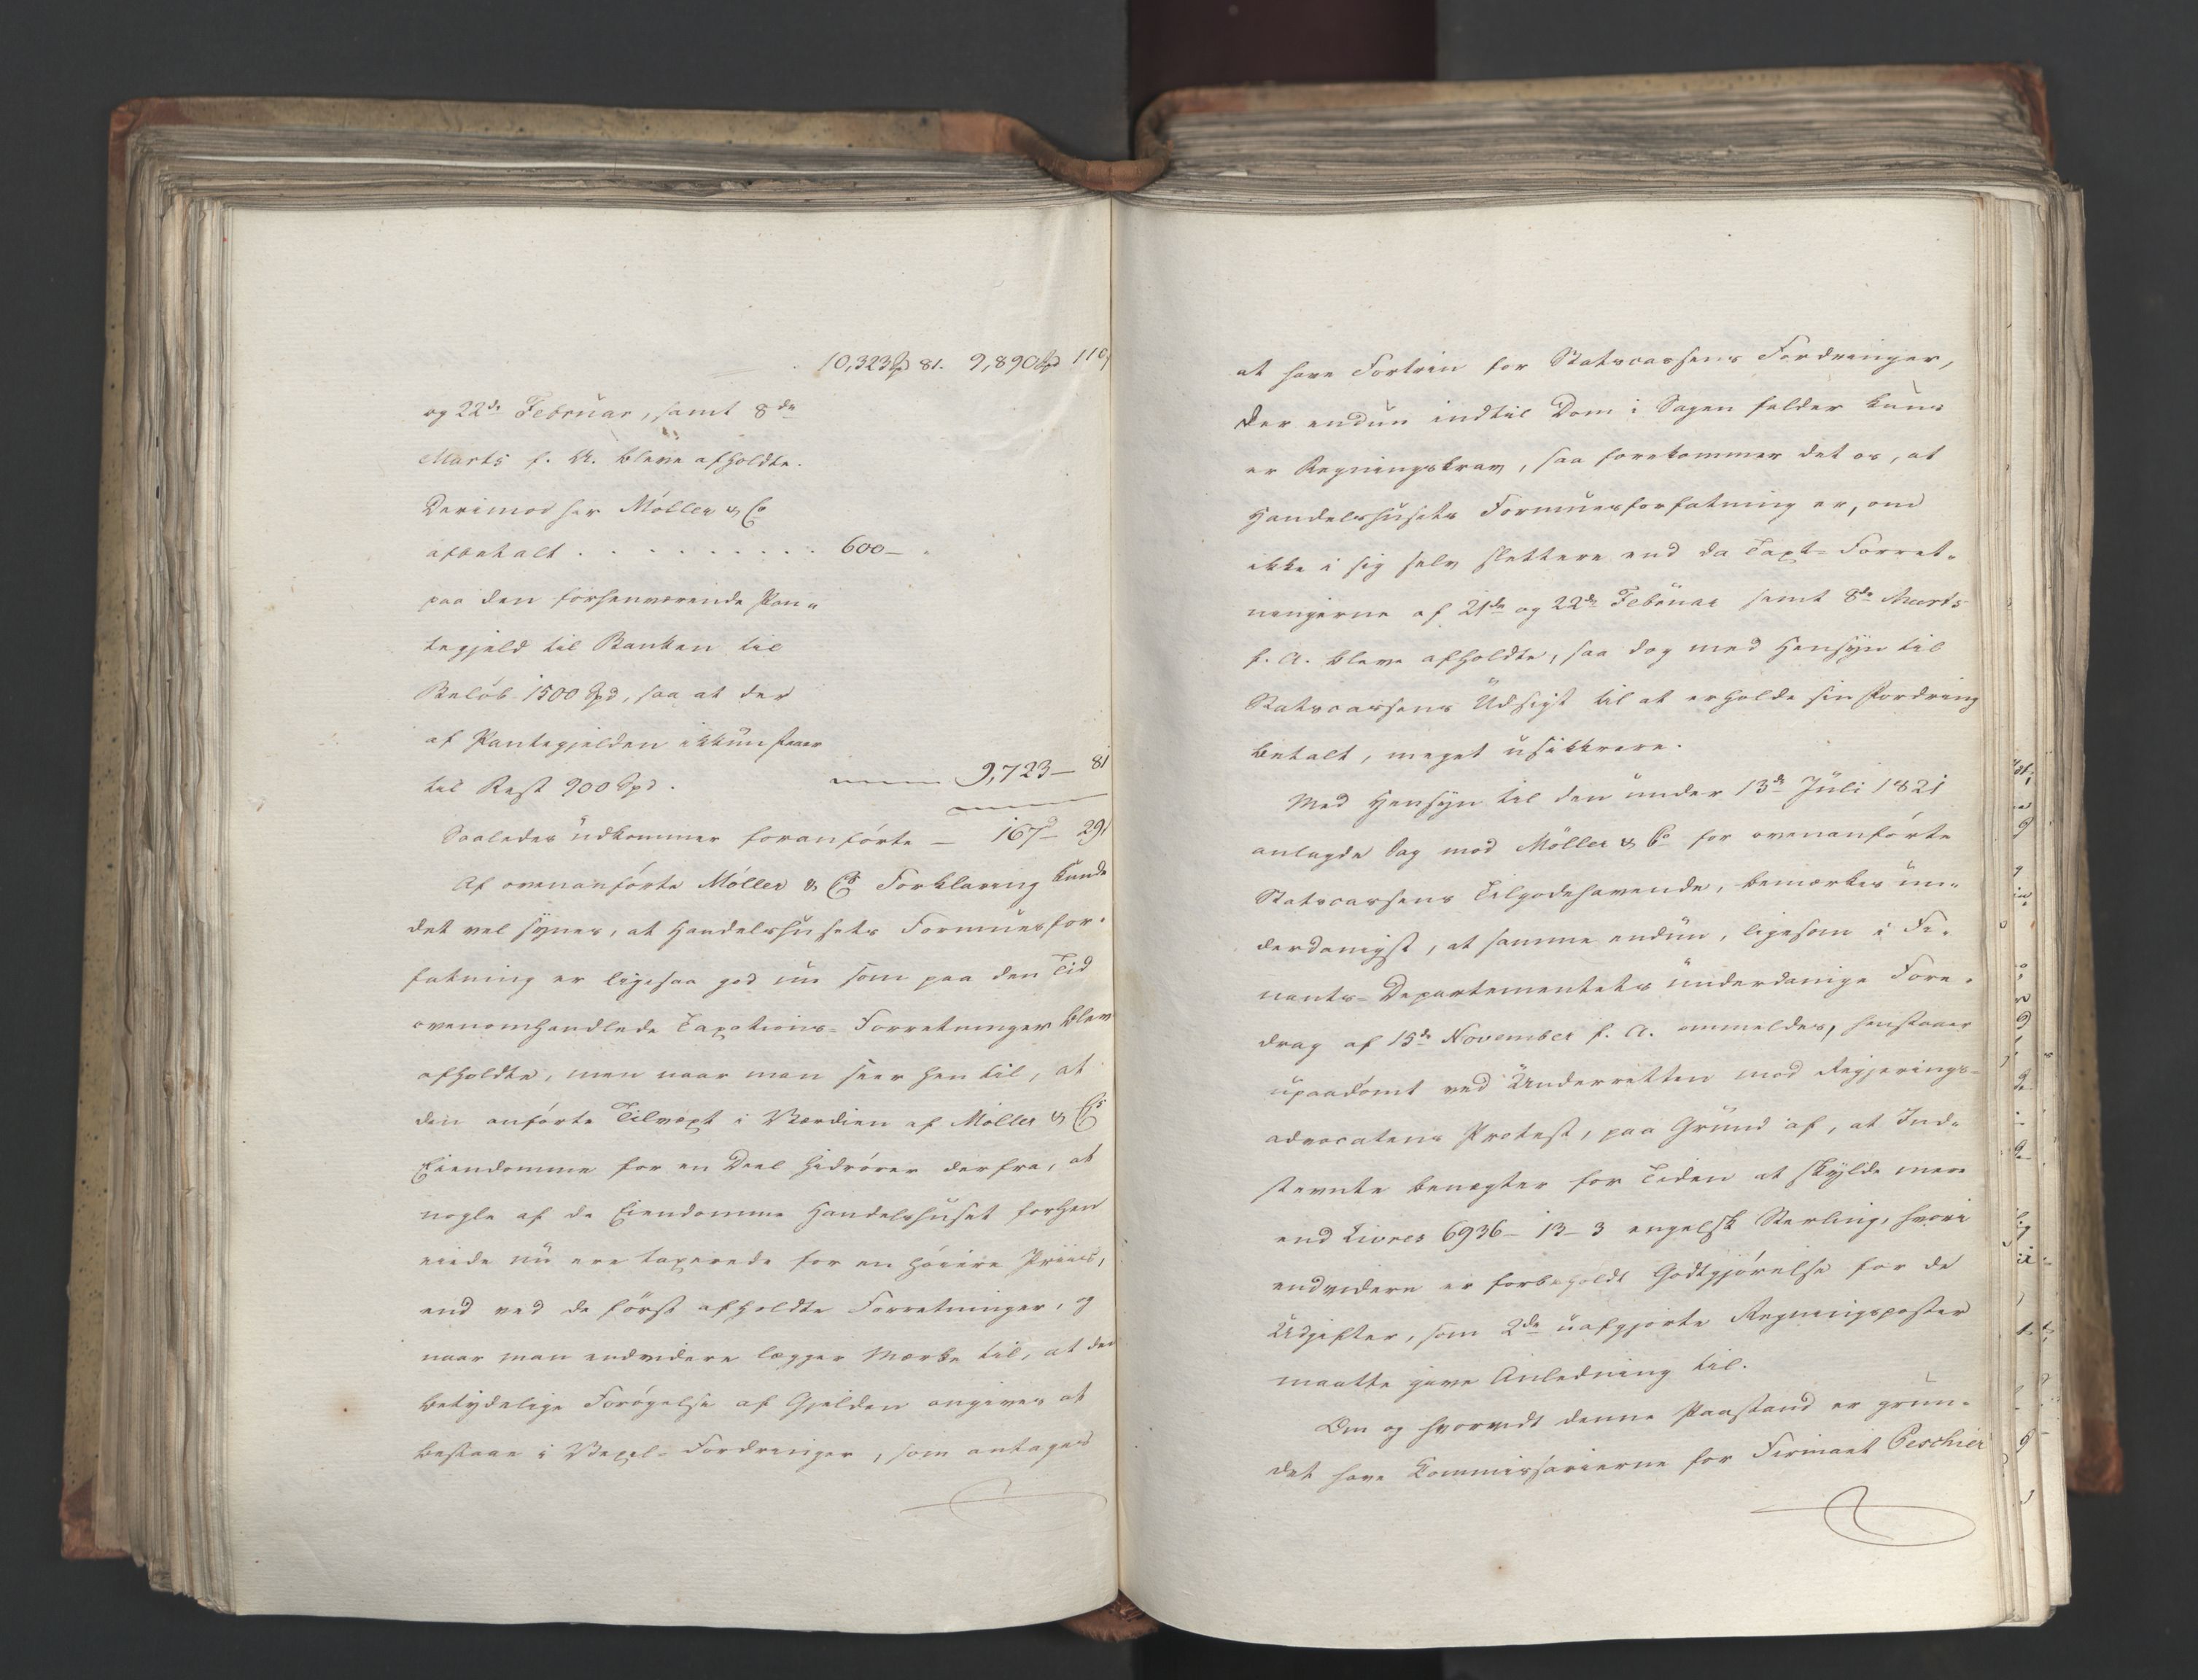 10,323 Spd 81. 9,890 Spd 110,
og 22de Februar, samt 8de
Marts f. A. bleve afholdte.
Derimod har Möller & Co
afbetalt . . . . . . . . . . 600 – "
paa den forhenværende Pan-
tegjeld til Banken til
Beløb 1500 Spd, saa at der
af Pantegjelden ikkun staaer
til Rest 900 Spd. 9,723 – 81
Saaledes udkommer foranførte – 167 – 29,
Af ovenanførte Möller & Cos Forklaring kunde
det vel synes, at Handelshusets Formuesfor-
fatning er ligesaa god nu som paa den Tid
ovenomhandlede Taxations-Forretninger blev
afholdte, men naar man seer hen til, at
den anførte Tilvæxt i Værdien af Möller & Cos
Eiendomme for en Deel hidrører derfra, at
nogle af de Eiendomme Handelshuset forhen
eiede nu ere taxerede for en høiere Priis,
end ved de først afholdte Forretninger, og
naar man endvidere lægger Mærke til, at den
betydelige Forøgelse af Gjelden angives at
bestaae i Vexel-Fordringer, som antages
at have Fortrin for Statscassens Fordringer,
der endnu indtil Dom i Sagen falder kun
er Regningskrav, saa forekommer det os, at
Handelshusets Formuesforfatning er, om
ikke i sig selv slettere end da Taxt-Forret-
ningerne af 21de og 22de Februar samt 8de Marts
f. A. bleve afholdte, saa dog med Hensyn til
Statscassens Udsigt til at erholde sin Fordring
betalt, meget usikkrere.
Med Hensyn til den under 13de Juli 1821
anlagde Sag mod Möller & Co for ovenanførte
Statscassens Tilgodehavende, bemærkes un-
derdanigst, at samme endnu, ligesom i Fi-
nants-Departementets underdanige Fore-
drag af 15de November f. A. ommeldes, henstaaer
upaadømt ved Underretten mod Regjerings-
advocatens Protest, paa Grund af, at Ind-
stevnte benægter for Tiden at skylde mere
end Livres 6936 – 13 – 3 engelsk Sterling, hvori
endvidere er forbeholdt Godtgjørelse for de
Udgifter, som 2de uafgjorte Regningsposter
maatte give Anledning til.
Om og hvorvidt denne Paastand er grun-
det have Commissarierne for Firmaet Peschier